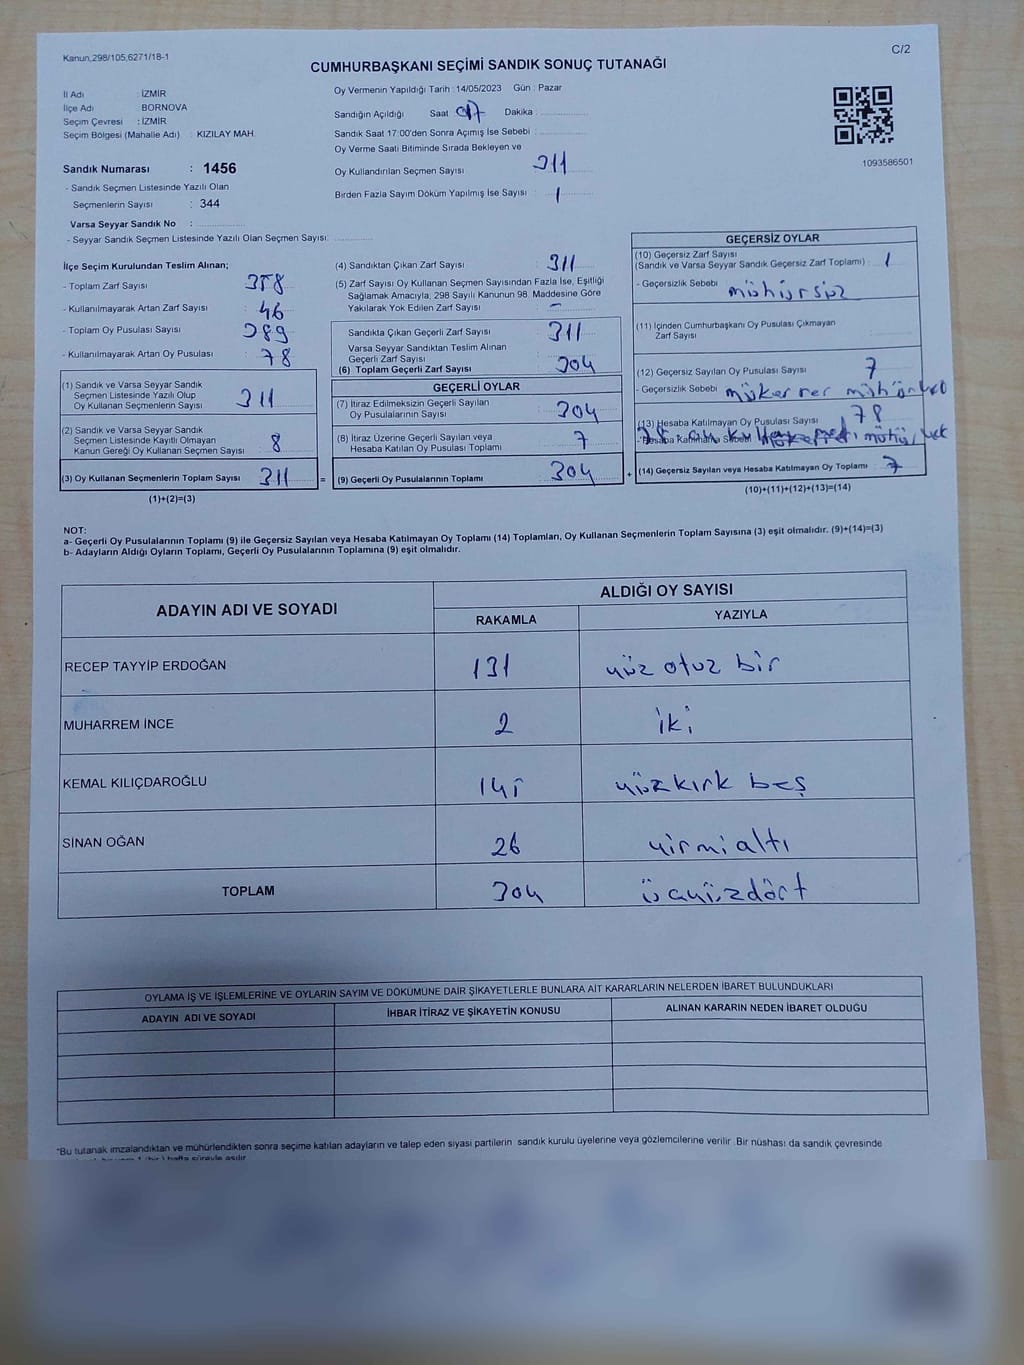 Kanun,298/105;6271/18-1
C/2
CUMHURBAŞKANI SEÇİMİ SANDIK SONUÇ TUTANAĞI
İl Adı : İZMİR
İlçe Adı : BORNOVA
Seçim Çevresi : İZMİR
Seçim Bölgesi (Mahalle Adı) : KIZILAY MAH.
Sandık Numarası : 1456
- Sandık Seçmen Listesinde Yazılı Olan
Seçmenlerin Sayısı : 344
Varsa Seyyar Sandık No :
- Seyyar Sandık Seçmen Listesinde Yazılı Olan Seçmen Sayısı:
Oy Vermenin Yapıldığı Tarih : 14/05/2023 Gün : Pazar
Sandığın Açıldığı Saat Dakika
Sandık Saat 17:00'den Sonra Açılmış İse Sebebi :
Oy Verme Saati Bitiminde Sırada Bekleyen ve
Oy Kullandırılan Seçmen Sayısı : 311
Birden Fazla Sayım Döküm Yapılmış İse Sayısı : 1
1093586501
İlçe Seçim Kurulundan Teslim Alınan;
- Toplam Zarf Sayısı : 358
- Kullanılmayarak Artan Zarf Sayısı : 46
- Toplam Oy Pusulası Sayısı : 389
- Kullanılmayarak Artan Oy Pusulası : 78
(1) Sandık ve Varsa Seyyar Sandık
Seçmen Listesinde Yazılı Olup
Oy Kullanan Seçmenlerin Sayısı : 311
(2) Sandık ve Varsa Seyyar Sandık
Seçmen Listesinde Kayıtlı Olmayan
Kanun Gereği Oy Kullanan Seçmen Sayısı : 8
(3) Oy Kullanan Seçmenlerin Toplam Sayısı : 311 =
(1)+(2)=(3)
(4) Sandıktan Çıkan Zarf Sayısı : 311
(5) Zarf Sayısı Oy Kullanan Seçmen Sayısından Fazla İse, Eşitliği
Sağlamak Amacıyla; 298 Sayılı Kanunun 98. Maddesine Göre
Yakılarak Yok Edilen Zarf Sayısı : -
Sandıkta Çıkan Geçerli Zarf Sayısı : 311
Varsa Seyyar Sandıktan Teslim Alınan
Geçerli Zarf Sayısı
(6) Toplam Geçerli Zarf Sayısı : 304
GEÇERLİ OYLAR
(7) İtiraz Edilmeksizin Geçerli Sayılan
Oy Pusulalarının Sayısı : 304
(8) İtiraz Üzerine Geçerli Sayılan veya
Hesaba Katılan Oy Pusulası Toplamı : 7
(9) Geçerli Oy Pusulalarının Toplamı : 304 +
GEÇERSİZ OYLAR
(10) Geçersiz Zarf Sayısı
(Sandık ve Varsa Seyyar Sandık Geçersiz Zarf Toplamı) : 1
- Geçersizlik Sebebi : mühürsüz
(11) İçinden Cumhurbaşkanı Oy Pusulası Çıkmayan
Zarf Sayısı
(12) Geçersiz Sayılan Oy Pusulası Sayısı : 7
- Geçersizlik Sebebi : müker rer
(13) Hesaba Katılmayan Oy Pusulası Sayısı : 78
- Hesaba Katılmama Sebebi
(14) Geçersiz Sayılan veya Hesaba Katılmayan Oy Toplamı : 7
(10)+(11)+(12)+(13)=(14)
NOT:
a- Geçerli Oy Pusulalarının Toplamı (9) ile Geçersiz Sayılan veya Hesaba Katılmayan Oy Toplamı (14) Toplamları, Oy Kullanan Seçmenlerin Toplam Sayısına (3) eşit olmalıdır. (9)+(14)=(3)
b- Adayların Aldığı Oyların Toplamı, Geçerli Oy Pusulalarının Toplamına (9) eşit olmalıdır.
ADAYIN ADI VE SOYADI
ALDIĞI OY SAYISI
RAKAMLA YAZIYLA
RECEP TAYYİP ERDOĞAN 131 yüz otuz bir
MUHARREM İNCE 2 iki
KEMAL KILIÇDAROĞLU 145 yüzkırk beş
SİNAN OĞAN 26 yirmialtı
TOPLAM 304 üçyüzdört
OYLAMA İŞ VE İŞLEMLERİNE VE OYLARIN SAYIM VE DÖKÜMÜNE DAİR ŞİKAYETLERLE BUNLARA AİT KARARLARIN NELERDEN İBARET BULUNDUKLARI
ADAYIN ADI VE SOYADI İHBAR İTİRAZ VE ŞİKAYETİN KONUSU ALINAN KARARIN NEDEN İBARET OLDUĞU
*Bu tutanak imzalandıktan ve mühürlendikten sonra seçime katılan adayların ve talep eden siyasi partilerin sandık kurulu üyelerine veya gözlemcilerine verilir. Bir nüshası da sandık çevresinde